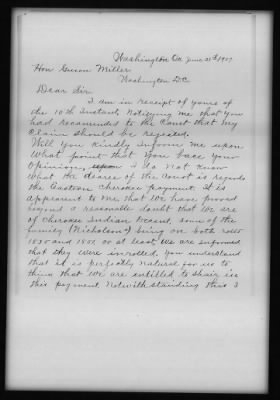 Washington Co June 21st 1909.
Hon Guion Miller
Washington D.C.
Dear Sir.
I am in receipt of yours of
the 10th Instant, Notifying me that you
had recomended to the Court that my
claim should be rejected.
Will you kindly inform me upon
What point that you base your
opinion, upon I do not know
What the decree of the Court is regards
the Eastern Cherokee payment. It is
apparent to me, that we have proved
beyond a reasonable doubt that we are
of Cherokee Indian Decent, some of the
family (Nicholson's) being on both rolls
1835 and 1851, or at least we are informed
that they were inrolled. You understand
that it is perfectly natural for us to
think that we are entitled to shair in
this payment. Notwithstanding this I